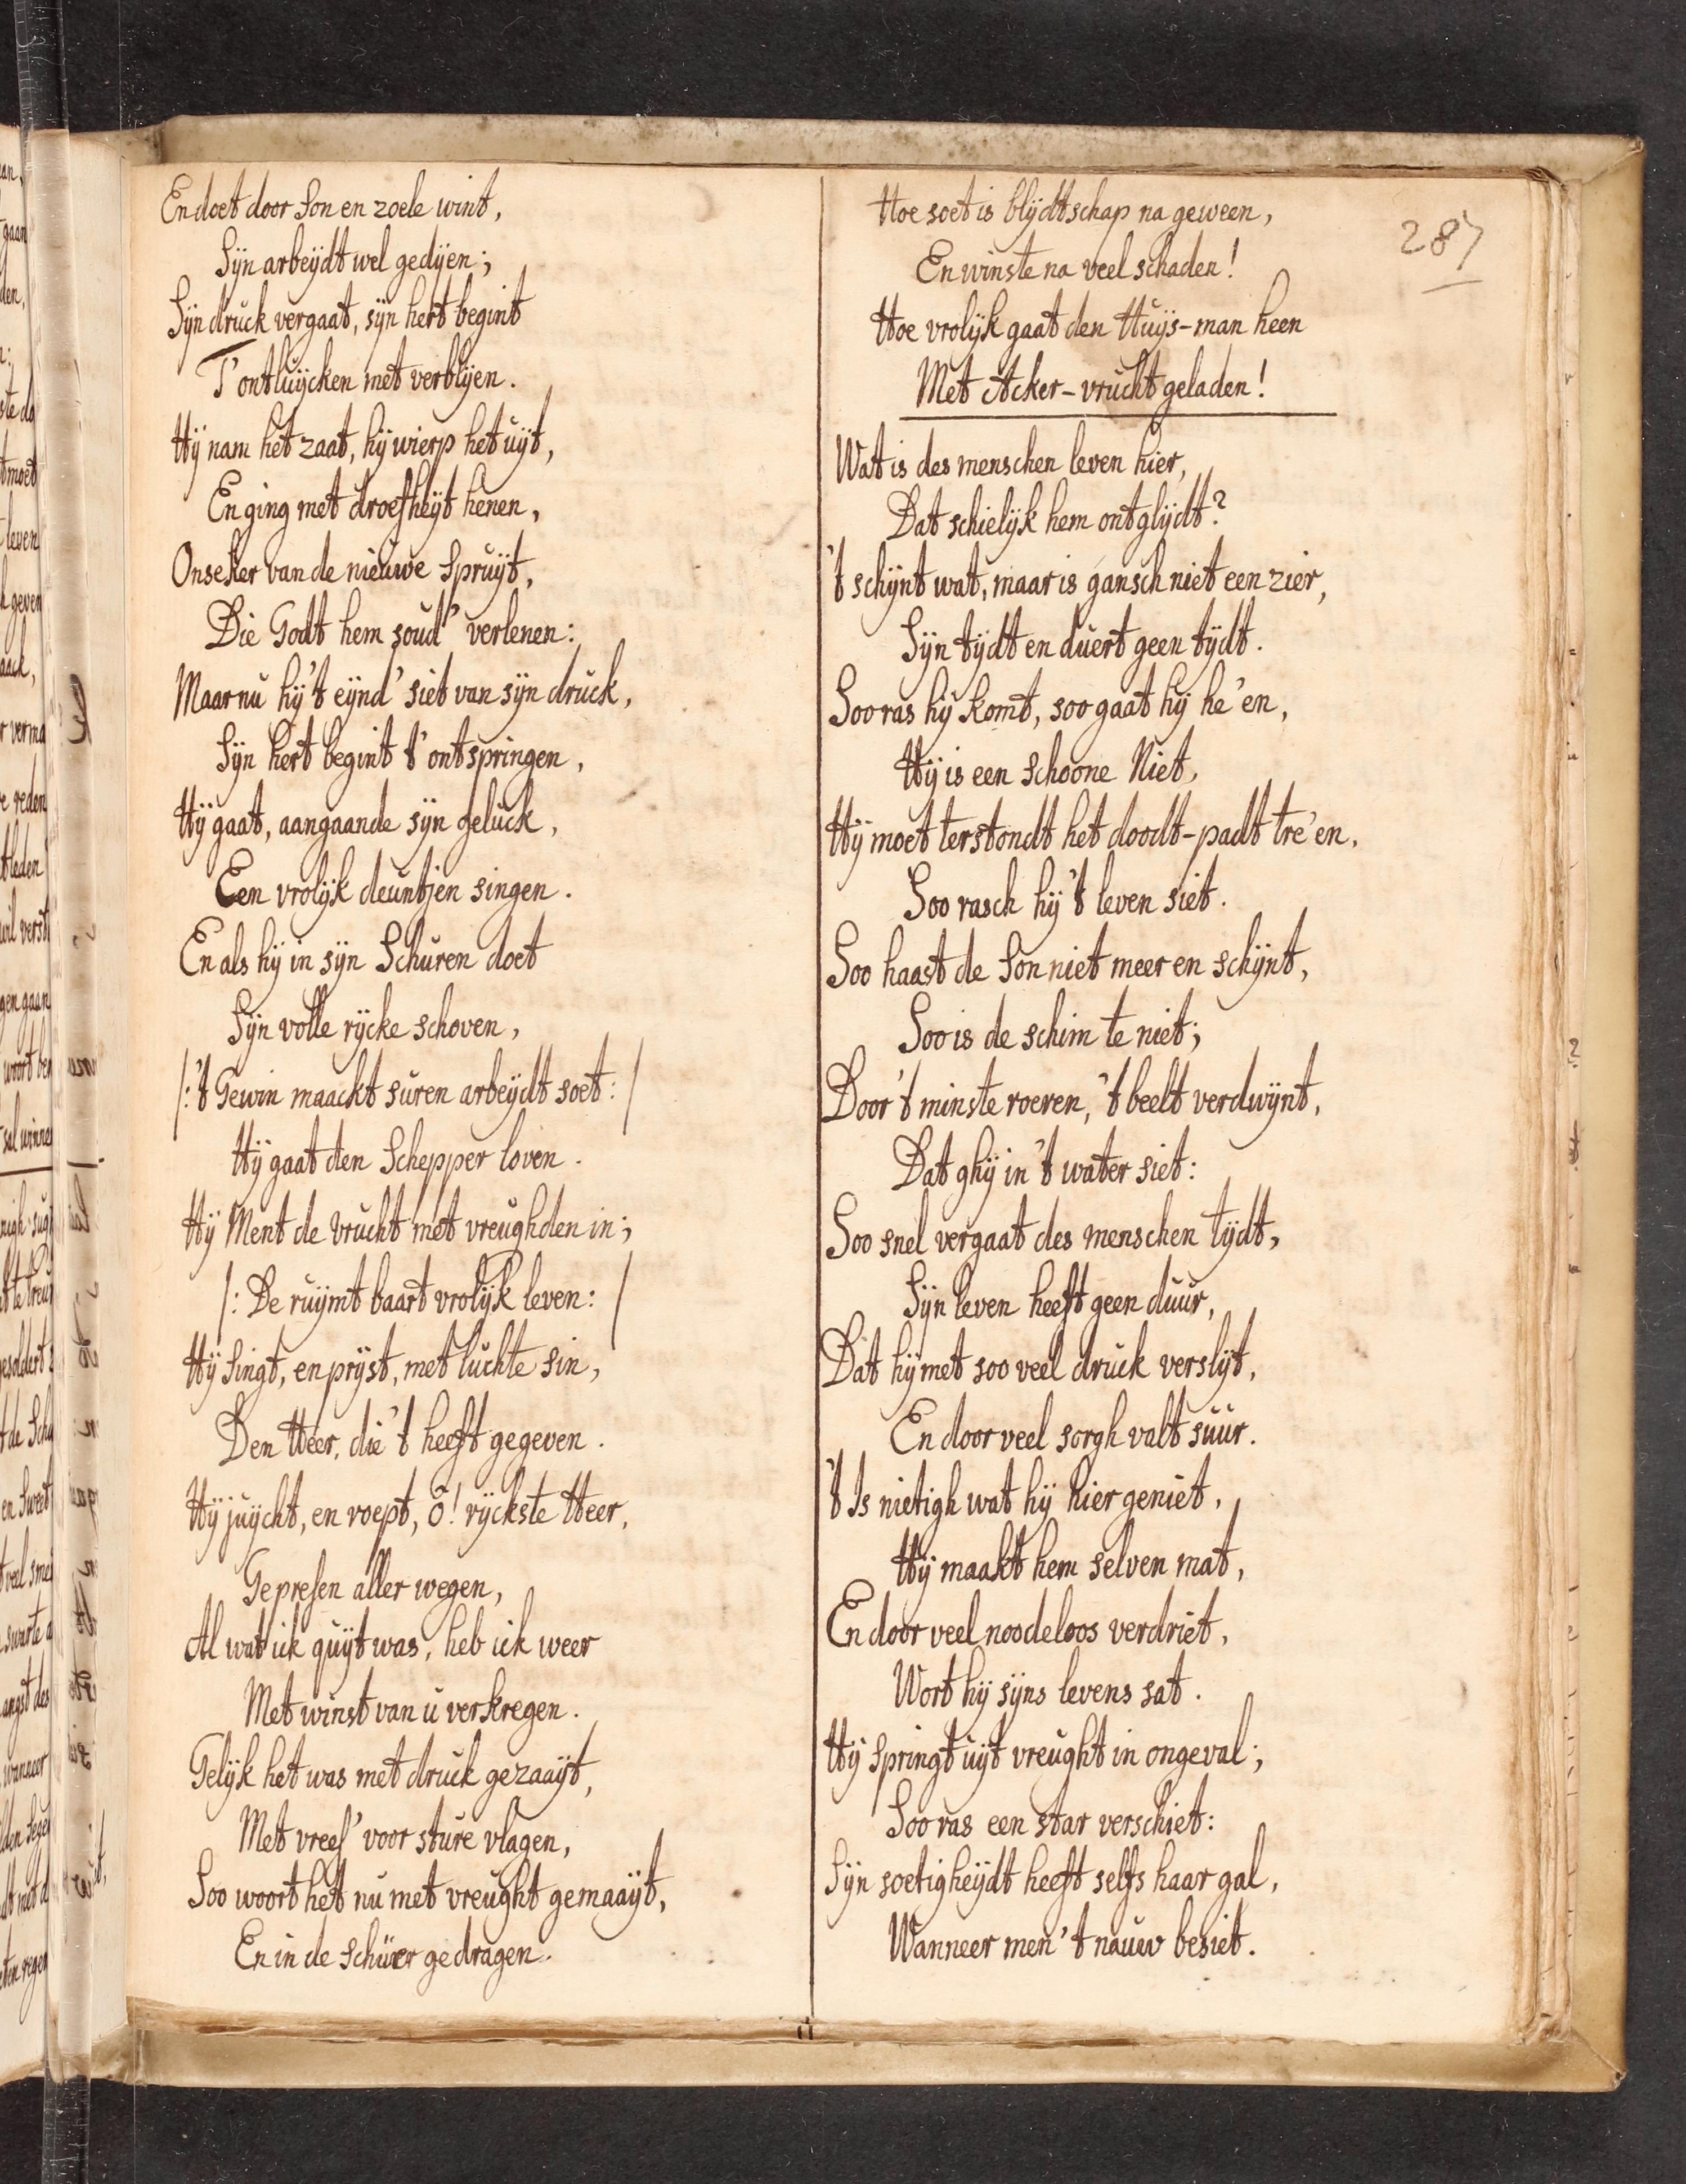 En doet door Son en zoele wint,
Sijn arbeijdt wel gedijen;
Sijn druck vergaat, sijn hert begint
T'ontluijcken met verblijen.
Hij nam het zaat, hij wierp het uijt,
En ging met droefheijt henen,
Onseker van de nieuwe Spruijt,
Die Godt hem soud' verlenen:
Maar nu hij't eijnd' siet van sijn druck,
Sijn hert begint t'ontspringen,
Hij gaat, aangaande sijn geluck,
Een vrolijk deuntjen singen.
En als hij in sijn Schuren doet
Sijn volle rijcke schoven,
/:'t Gewin maackt suren arbeijdt soet:/
Hij gaat den Schepper loven.
Hij Ment de vrucht met vreughden in;
/: De ruijmt baart vrolijk leven:/
Hij Singt, en prijst, met luchte sin,
Den Heer, die 't heeft gegeven.
Hij juijcht, en roept, ô! rijckste Heer,
Gepresen aller wegen,
Al wat ick quijt was, heb ick weer
Met winst van u verkregen.
Gelijk het was met druck gezaaijt,
Met vrees' voor sture vlagen,
Soo woort het nu met vreught gemaaijt,
En in de Schuer gedragen.
287
Hoe soet is blijdtschap na geween,
En winste na veel schaden!
Hoe vrolijk gaat den Huijs-man heen
Met Acker-vrucht geladen!
Wat is des menschen leven hier,
Dat schielijk hem ontglijdt?
't schijnt wat, maar is gansch niet een zier,
Sijn tijdt en duert geen tijdt.
Soo ras hij komt, soo gaat hij he'en,
Hij is een schoone Niet,
Hij moet terstondt het doodt-padt tre'en,
Soo rasch hij 't leven siet.
Soo haast de Son niet meer en schijnt,
Soo is de schim te niet;
Door 't minste roeren, 't beelt verdwijnt,
Dat ghij in 't water siet:
Soo snel vergaat des menschen tijdt,
Sijn leven heeft geen duur,
Dat hij met soo veel druck verslijt,
En door veel sorgh valt suur.
't Is nietigh wat hij hier geniet,
Hij maakt hem selven mat,
En door veel noodeloos verdriet,
Wort hij sijns levens sat.
Hij springt uijt vreught in ongeval;
Soo ras een star verschiet:
Sijn soetigheijdt heeft selfs haar gal,
Wanneer men 't nauw besiet.